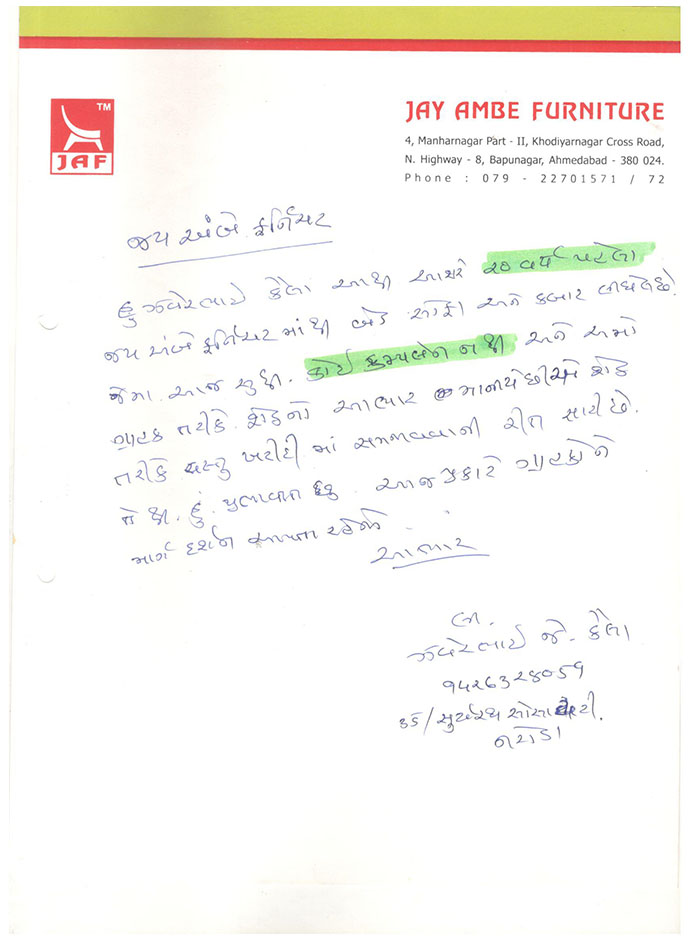 TM
JAF
JAY AMBE FURNITURE
4, Manharnagar Part - II, Khodiyarnagar Cross Road,
N. Highway - 8, Bapunagar, Ahmedabad - 380 024.
Phone : 079 - 22701571 / 72
જય અંબે ફર્નિચર
હું ઝવેરભાઈ કેલા આથી આશરે ૨૦ વર્ષ પહેલા
જય અંબે ફર્નિચર માંથી બેડ સોફા અને કબાટ લીધેલ છે.
જેમા આજ સુધી. કોઈ કમ્પલેન નથી અને અમો
ગ્રાહક તરીકે. આભાર માનીયે છીએ
તરીકે વસ્તુ ખરીદી માં સમજાવવાની રીત સારી છે.
તેથી. હું. આજ પ્રકારે ગ્રાહકોને
માર્ગ દર્શન આપતા રહેજો.
આભાર
લી.
ઝવેરભાઈ જે. કેલા
૧૪૨૬૩૨૪૦૫૧
૩૬/ સોસાયટી.
નરોડા